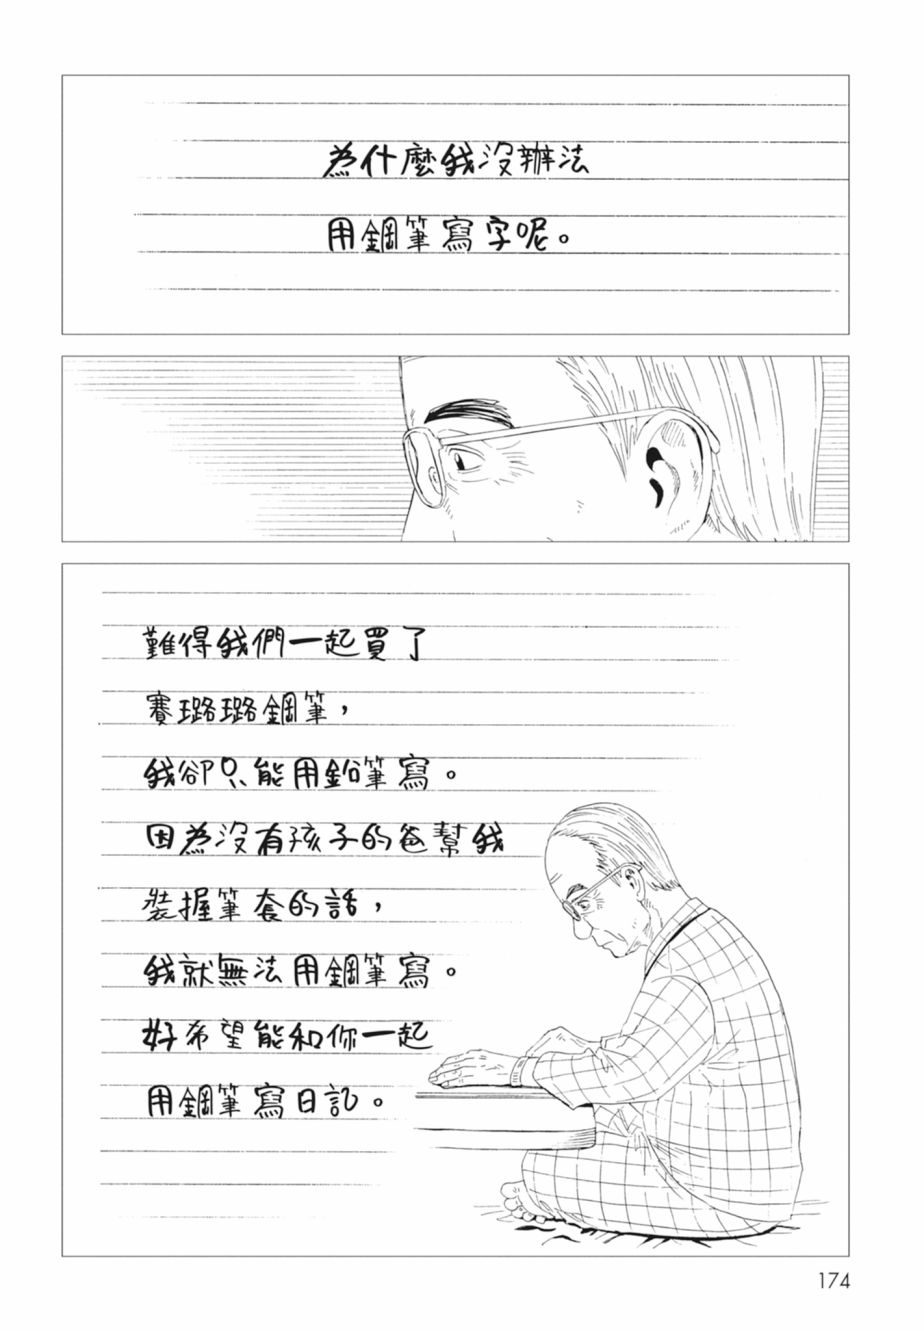 為什麼我沒辦法
用鋼筆寫字呢。
難得我們一起買了
賽璐璐鋼筆，
我卻只能用鉛筆寫。
因為沒有孩子的爸幫我
裝握筆套的話，
我就無法用鋼筆寫。
好希望能和你一起
用鋼筆寫日記。
174